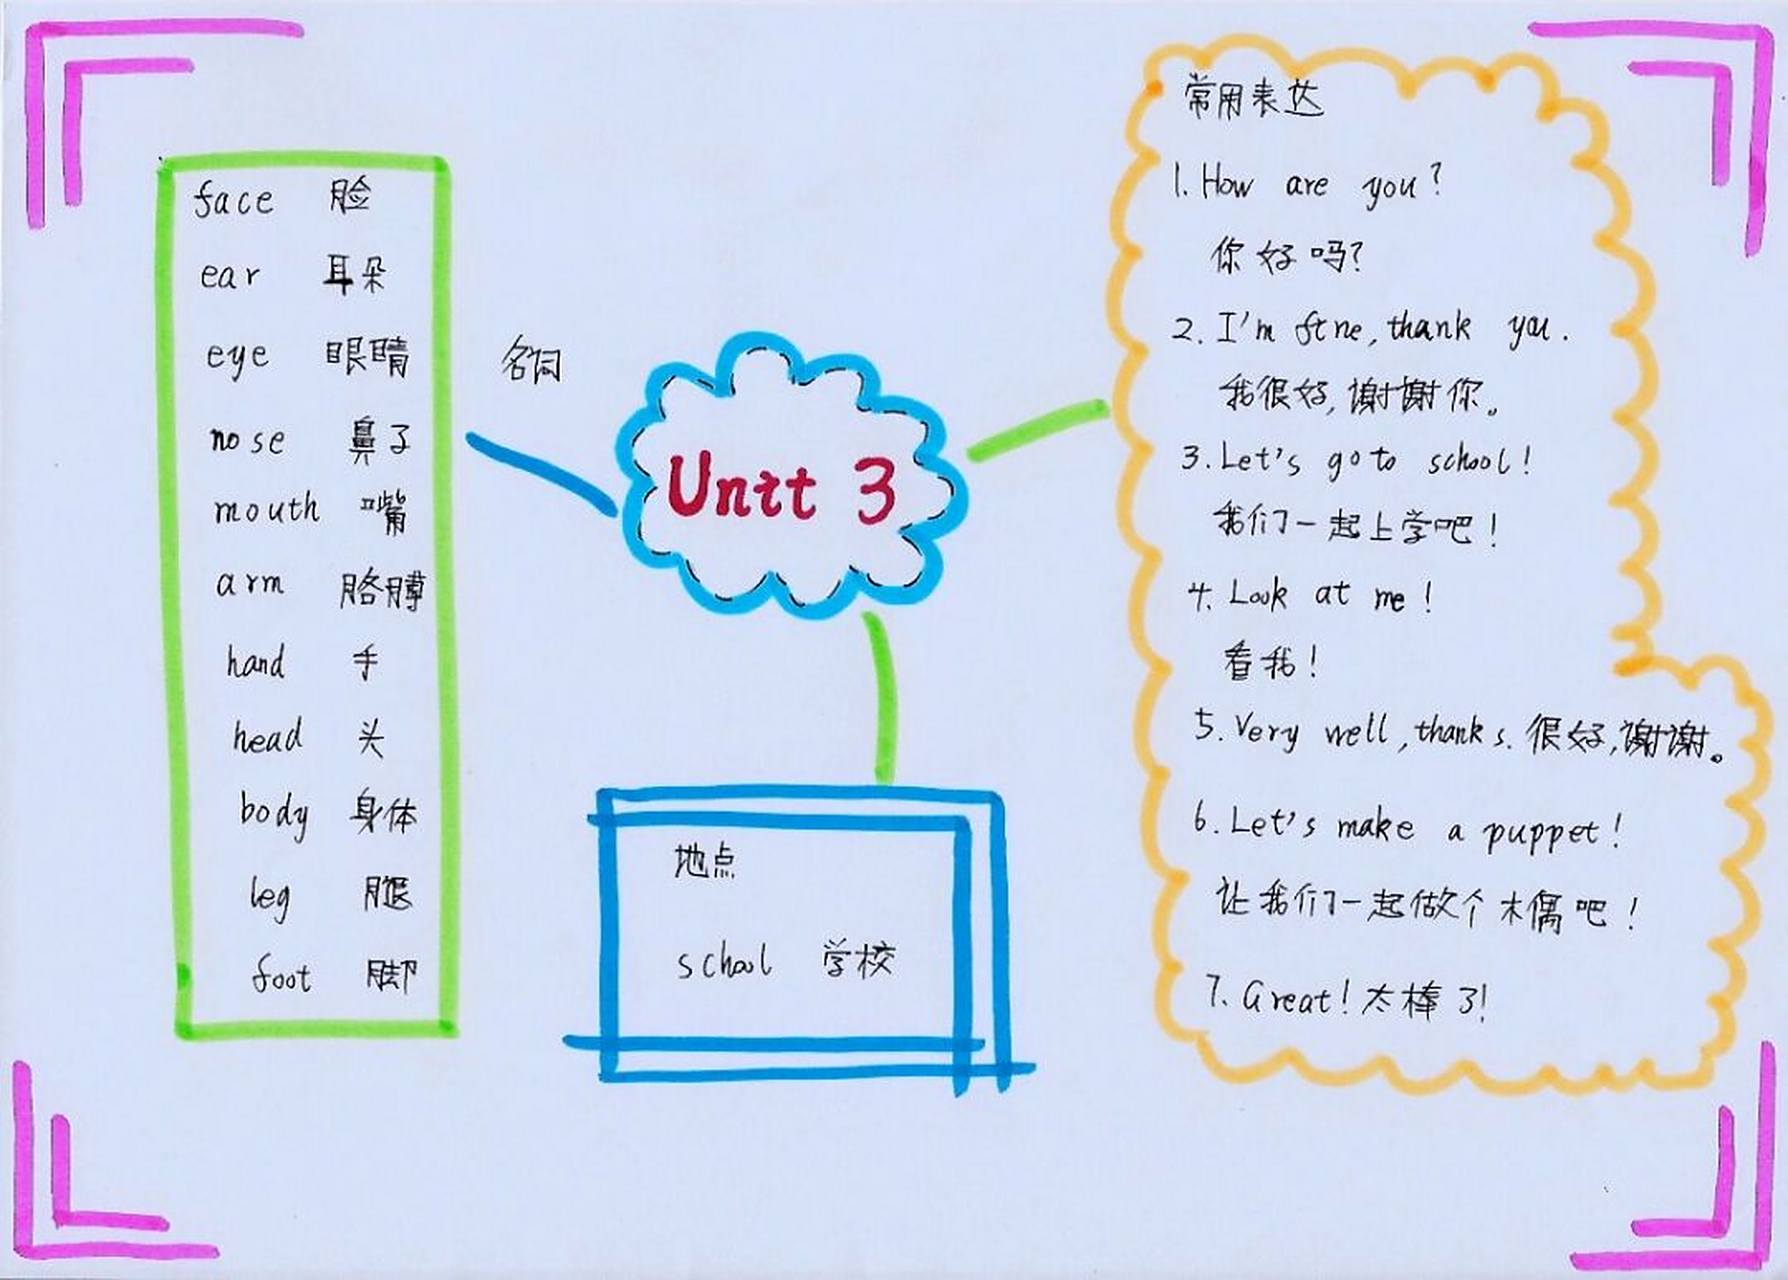 face 脸
ear 耳朵
eye 眼睛
nose 鼻子
mouth 嘴
arm 胳膊
hand 手
head 头
body 身体
leg 腿
foot 脚
名词
Unit 3
地点
school 学校
常用表达
1. How are you?
你好吗?
2. I'm fine, thank you.
我很好,谢谢你。
3. Let's go to school!
我们一起上学吧!
4. Look at me!
看我!
5. Very well, thanks. 很好,谢谢。
6. Let's make a puppet!
让我们一起做个木偶吧!
7. Great!太棒了!